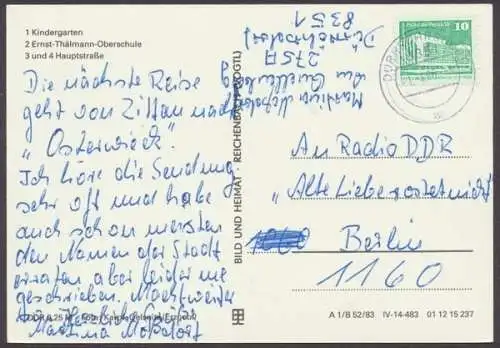 1 Kindergarten
2 Ernst-Thälmann-Oberschule
3 und 4 Hauptstraße
Die nächste Reise
geht von Zittau nach
"Osterwieck".
Ich höre die Sendung
sehr oft und habe
auch schon meistens
den Namen der Stadt
erraten, aber leider nie
geschrieben. Macht weiter
so. Herzliche
Martina Moßdorf
Martina Moßdorf
27511
8351
Dürrröhrsdorf
BILD UND HEIMAT · REICHENBACH (VOGTL)
10
An Radio DDR
"Alte Liebe rostet nicht"
Berlin
1160
A 1/B 52/83 IV-14-483 01 12 15 237